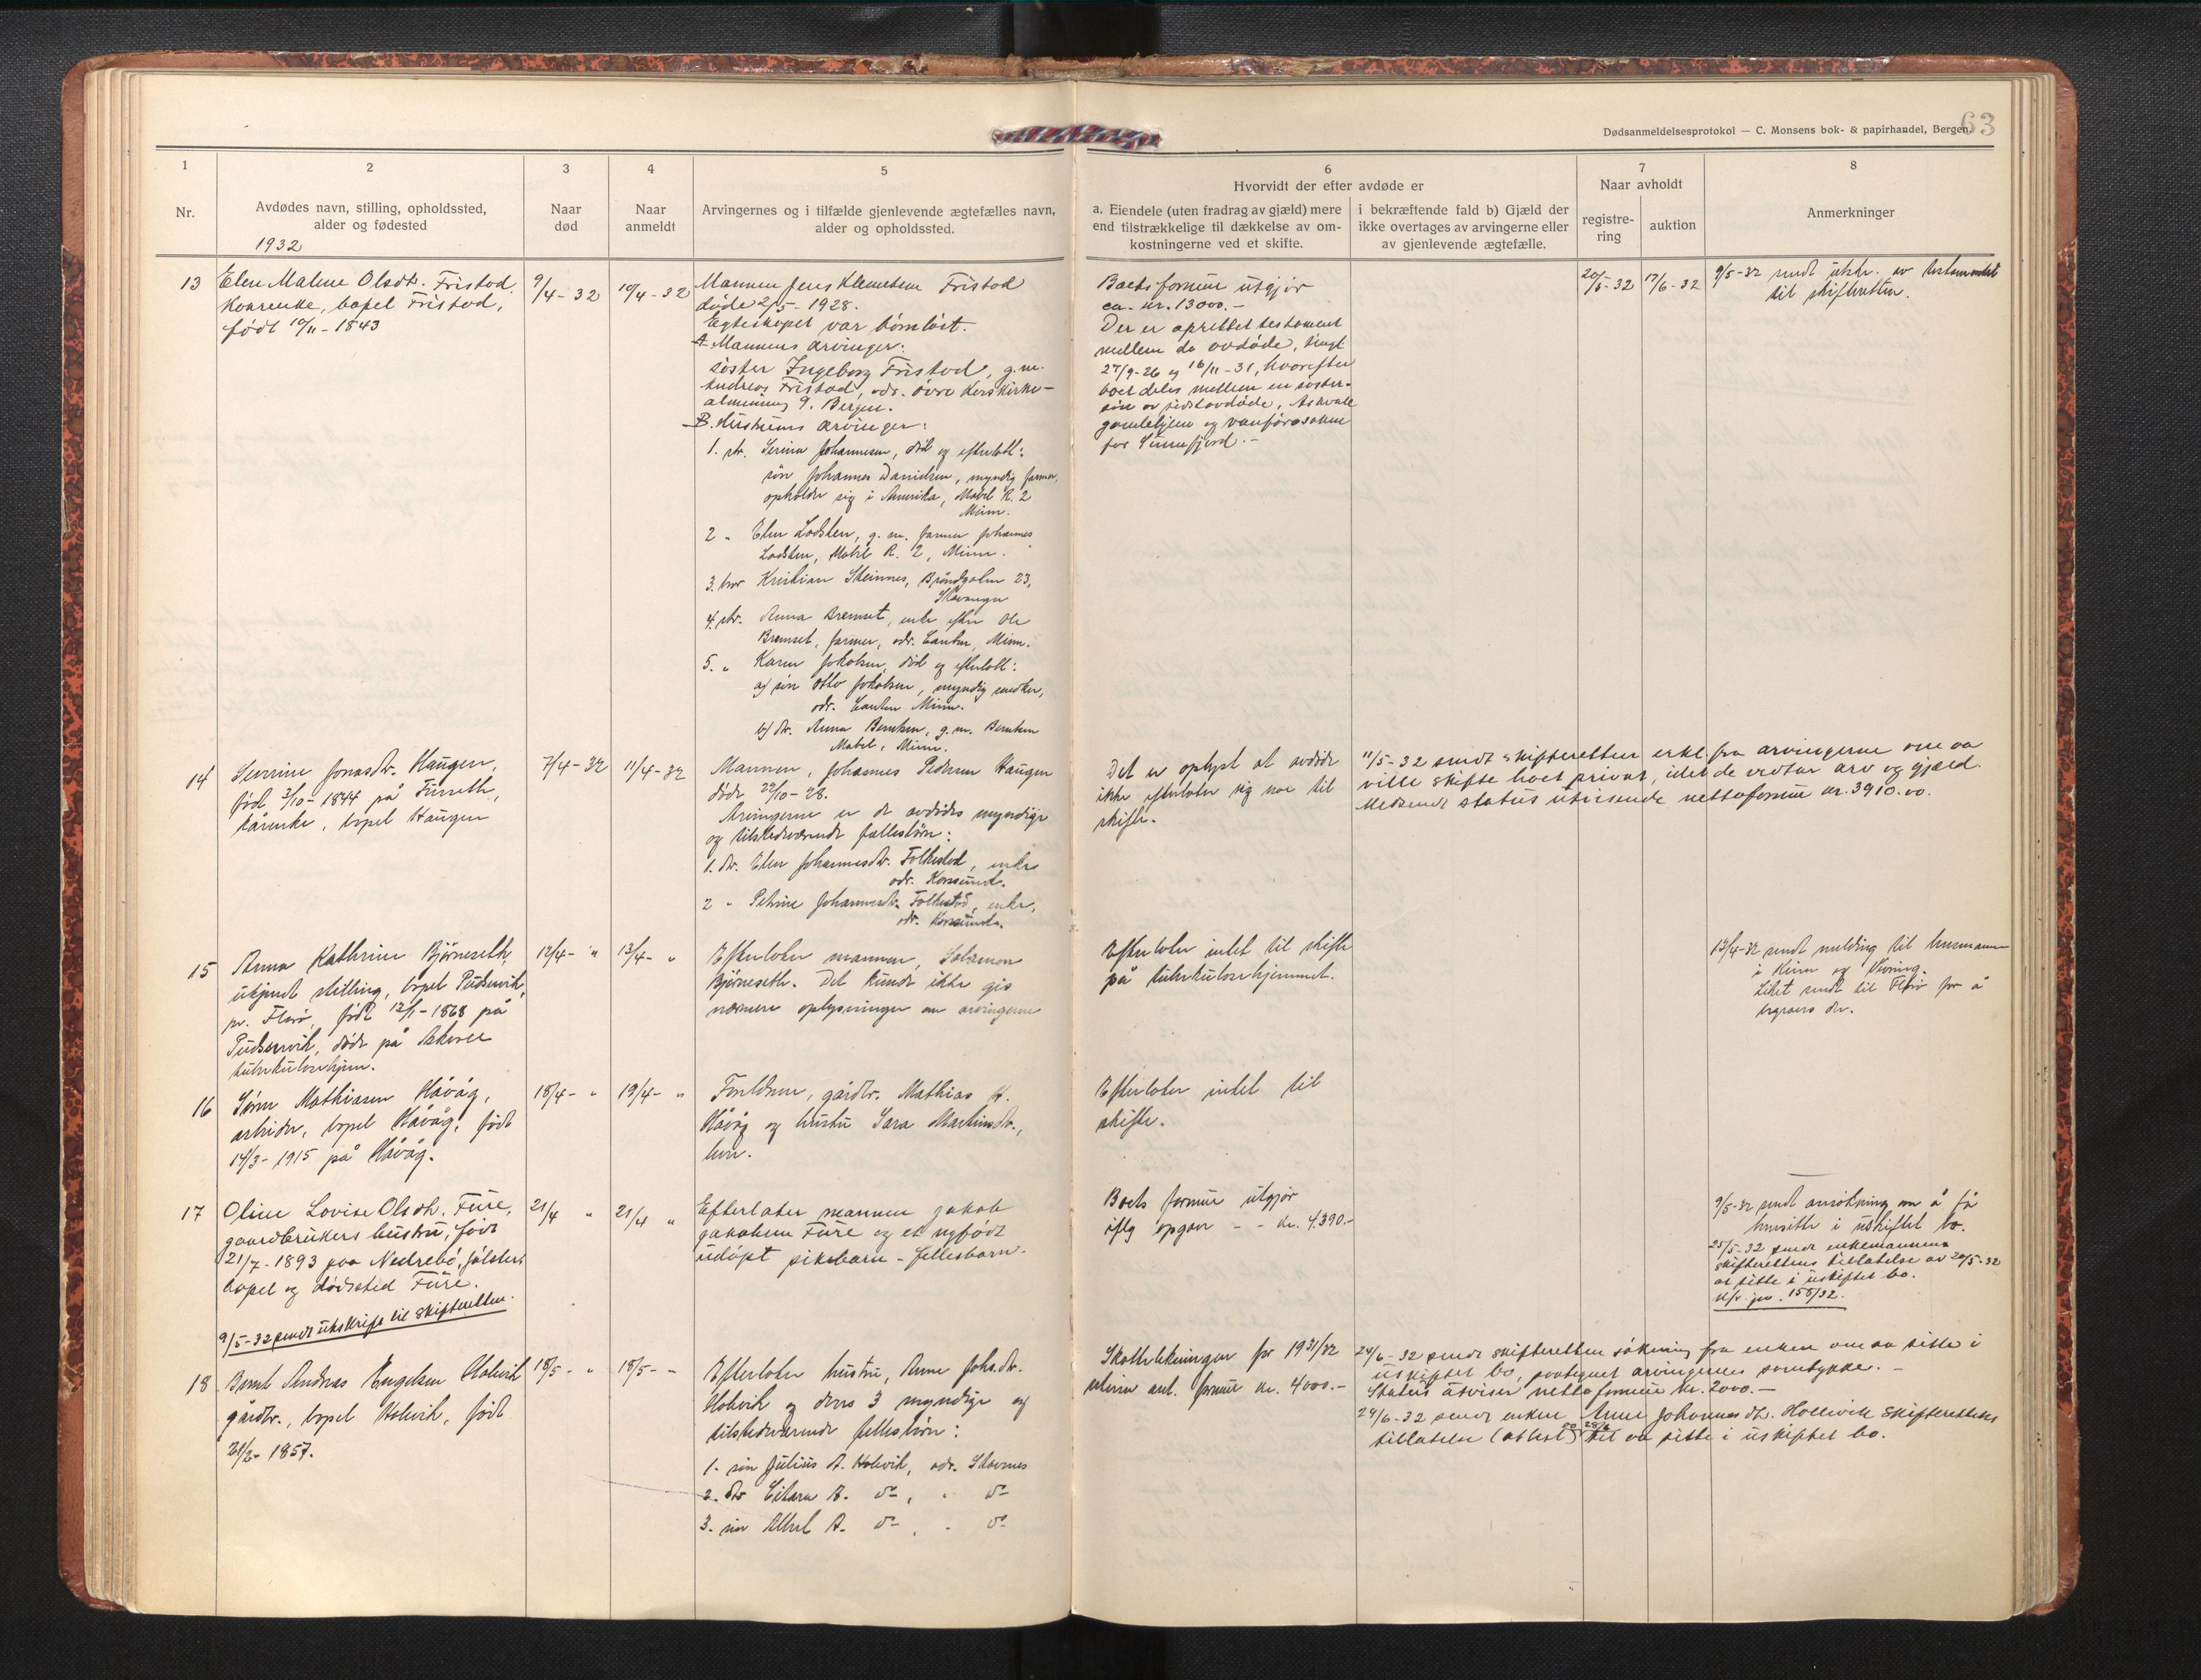 Dødsanmeldelsesprotokol — C. Monsens bok- & papirhandel, Bergen.
63
1
2
3
4
5
6
7
8
Nr.
Avdødes navn, stilling, opholdssted,
alder og fødested
1932
Naar
død
Naar
anmeldt
Arvingernes og i tilfælde gjenlevende ægtefælles navn,
alder og opholdssted.
Hvorvidt der efter avdøde er
a. Eiendele (uten fradrag av gjæld) mere
end tilstrækkelige til dækkelse av om-
kostningerne ved et skifte.
i bekræftende fald b) Gjæld der
ikke overtages av arvingerne eller
av gjenlevende ægtefælle.
Naar avholdt
registre-
ring
auktion
Anmerkninger
13
Elen Malene Olsdtr. Fristad
Kaarenke, bopel Fristad,
født 10/11-1843
9/4-32
10/4-32
Mannen Jens Klemetsen Fristad
døde 2/5-1928.
Egteskapet var barnløst.
A. Mannens arvinger:
søster Ingeborg Fristad, g.m.
Andreas Fristad, adr. Øvre Korskirke-
almening 9. Bergen.
B. Hustruens arvinger:
1. str. Serina Johannesen, død og efterlatt:
søn Johannes Danielsen, myndig farmer,
opholder sig i Amerika, Mabel R. 2
Minn.
2 " Elen Ladsten, g.m. farmer Johannes
Ladsten, Mabel R. 2, Minn.
3. bror Kristian Steinnes, Brøndgaten 23,
Stavanger
4. str. Anna Bremset, enke efter Ole
Bremset, farmer, adr. Canton, Minn.
5. " Karen Jakobsen, død og efterlatt:
a) søn Otto Jakobsen, myndig snedker,
adr. Canton Minn.
b) dtr. Anna Berntsen, g.m. Berntsen
Mabel, Minn.
Boets formue utgjør
ca. kr. 13000.-
Der er oprettet testament
mellem de avdøde, tingl.
27/9-26 og 16/11-31, hvorefter
boet deles mellem en søster-
søn av sidstavdøde, Askvoll
gamlehjem og vanføresaken
for Sunnfjord.-
20/5-32
17/6-32
9/5-32 sendt utskr. av testamentet
til skifteretten.
14
Severine Jonasdtr. Haugen,
født 3/10-1844 på
kårenke, bopel Haugen
7/4-32
11/4-32
Mannen, Johannes Pedersen Haugen
døde 22/10-28.
Arvingerne er de avdødes myndige
og tilstedeværende fellesbørn:
1. dtr. Elen Johannesdtr. Folkestad, enke
adr. Korssund.
2 " Petrine Johannesdtr. Folkestad, enke,
adr. Korssund.
Det er oplyst at avdøde
ikke efterlater sig noe til
skifte.
11/5-32 sendt skifteretten erkl. fra arvingerne om aa
ville skifte boet privat, idet de vedtar arv og gjæld.
Medsendt status utvisende nettoformue kr. 3910.00.
15
Anna Kathrine Bjørneseth,
ukjendt stilling, bopel
pr. Florø, født 12/1-1868 på
døde på Askvoll
tuberkulosehjem.
12/4- "
13/4- "
Efterlater mannen, Salamon
Bjørneseth. Det kunde ikke gis
nærmere oplysninger om arvingerne
Efterlater intet til skifte
på tuberkulosehjemmet.
13/4-32 sendt melding til lensmannen
i Kinn og Nevring.
Liket sendt til Florø for å
begraves der.
16
Søren Mathiasen Håvåg,
arbeider, bopel Håvåg, født
14/3-1915 på Håvåg.
18/4- "
19/4- "
Foreldrene, gårdbr. Mathias H.
Håvåg og hustru Sara Martinsdtr.,
her.
Efterlater intet til
skifte.
17
Oline Lovise Olsdtr. Fure,
gaardbrukers hustru, født
21/7-1893 paa Nedrebø, Jølster.
bopel og dødssted Fure.
9/5-32 sendt utskrift til skifteretten.
21/4 "
21/4 "
Efterlater mannen Jakob
Jakobsen Fure og et nyfødt
udøpt pikebarn - fellesbarn.
Boets formue utgjør
iflg opgave - - kr. 4390.-
9/5-32 sendt ansøkning om å få
hensitte i uskiftet bo.
25/5-32 sendt enkemannen
skifterettens tillatelse av 20/5-32
at sitte i uskiftet bo.
155/32.
18
Bernt Andreas Engelsen Holevik
gårdbr., bopel Holevik, født
21/2-1857.
18/5- "
18/5- "
Efterlater hustru, Anne Johsdtr.
Holevik og deres 3 myndige og
tilstedeværende fellesbørn:
1. søn Julius A. Holevik, adr. Stavnes
2. dtr A. do, " do
3. søn A. do, " do
Skatteligningen for 1931/32
utviser ant. formue kr. 4000.-
24/6-32 sendt skifteretten søkning fra enken om aa sitte i
uskiftet bo, paategnet arvingenes samtykke.-
Status utviser netto formue kr. 2000.-
29/6-32 sendt enken Anne Johannesdtr. Hollevik skifterettens
tillatelse (attest) av 28/6 til aa sitte i uskiftet bo.